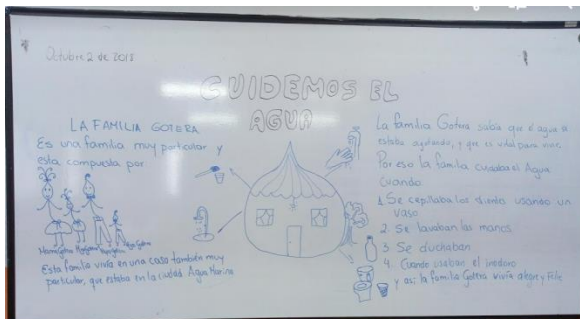 Octubre 2 de 2018
CUIDEMOS EL
AGUA
LA FAMILIA GOTERA
Es una familia muy particular y
esta compuesta por:
Esta familia vivía en una casa también muy
particular, que estaba en la ciudad Agua Marina
La familia Gotera sabía que el agua se
estaba agotando, y que es vital para vivir.
Por eso la familia cuidaba el Agua
Cuando
1. Se cepillaba los diente usando un
vaso
2. Se lavaban las manos
3 Se duchaban
4. Cuando usaban el inodoro
y así la familia Gotera vivía alegre y Feliz